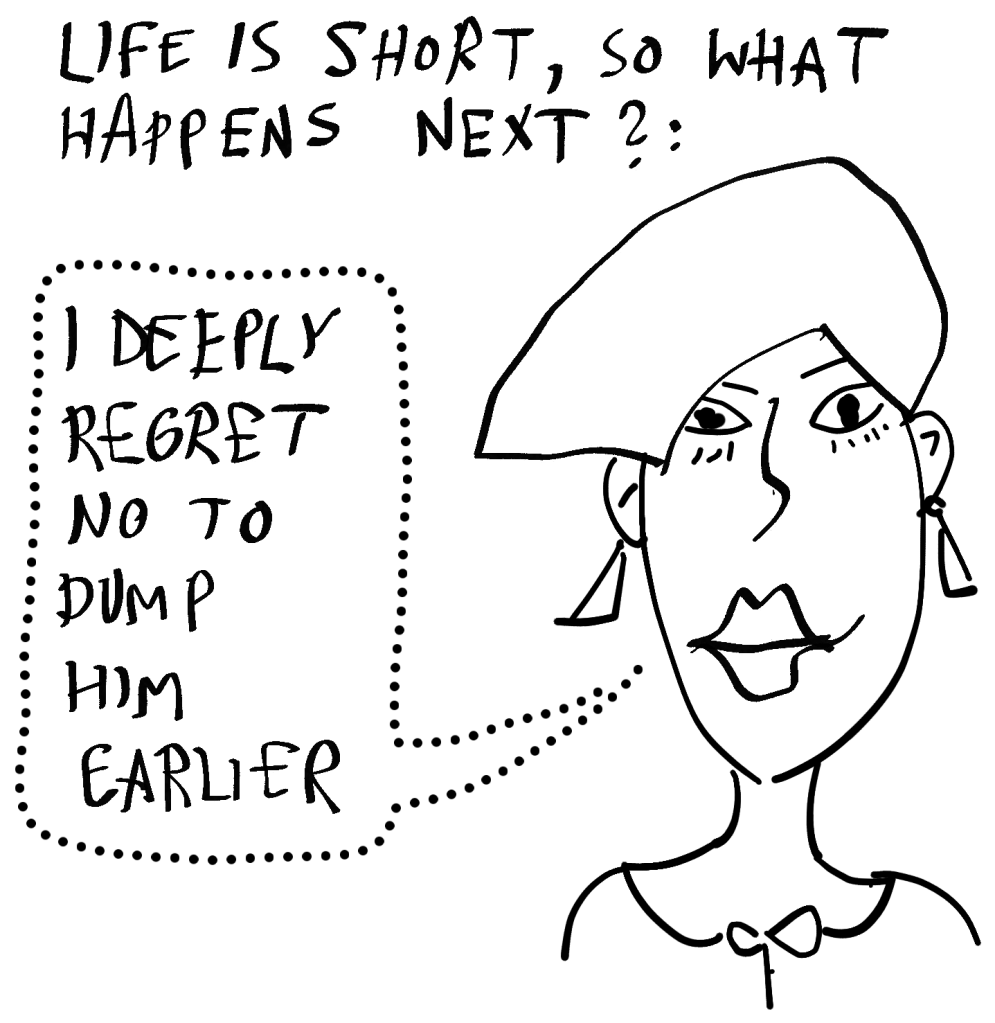 LIFE IS SHORT, SO WHAT
HAPPENS NEXT?:
I DEEPLY
REGRET
NO TO
DUMP
HIM
EARLIER